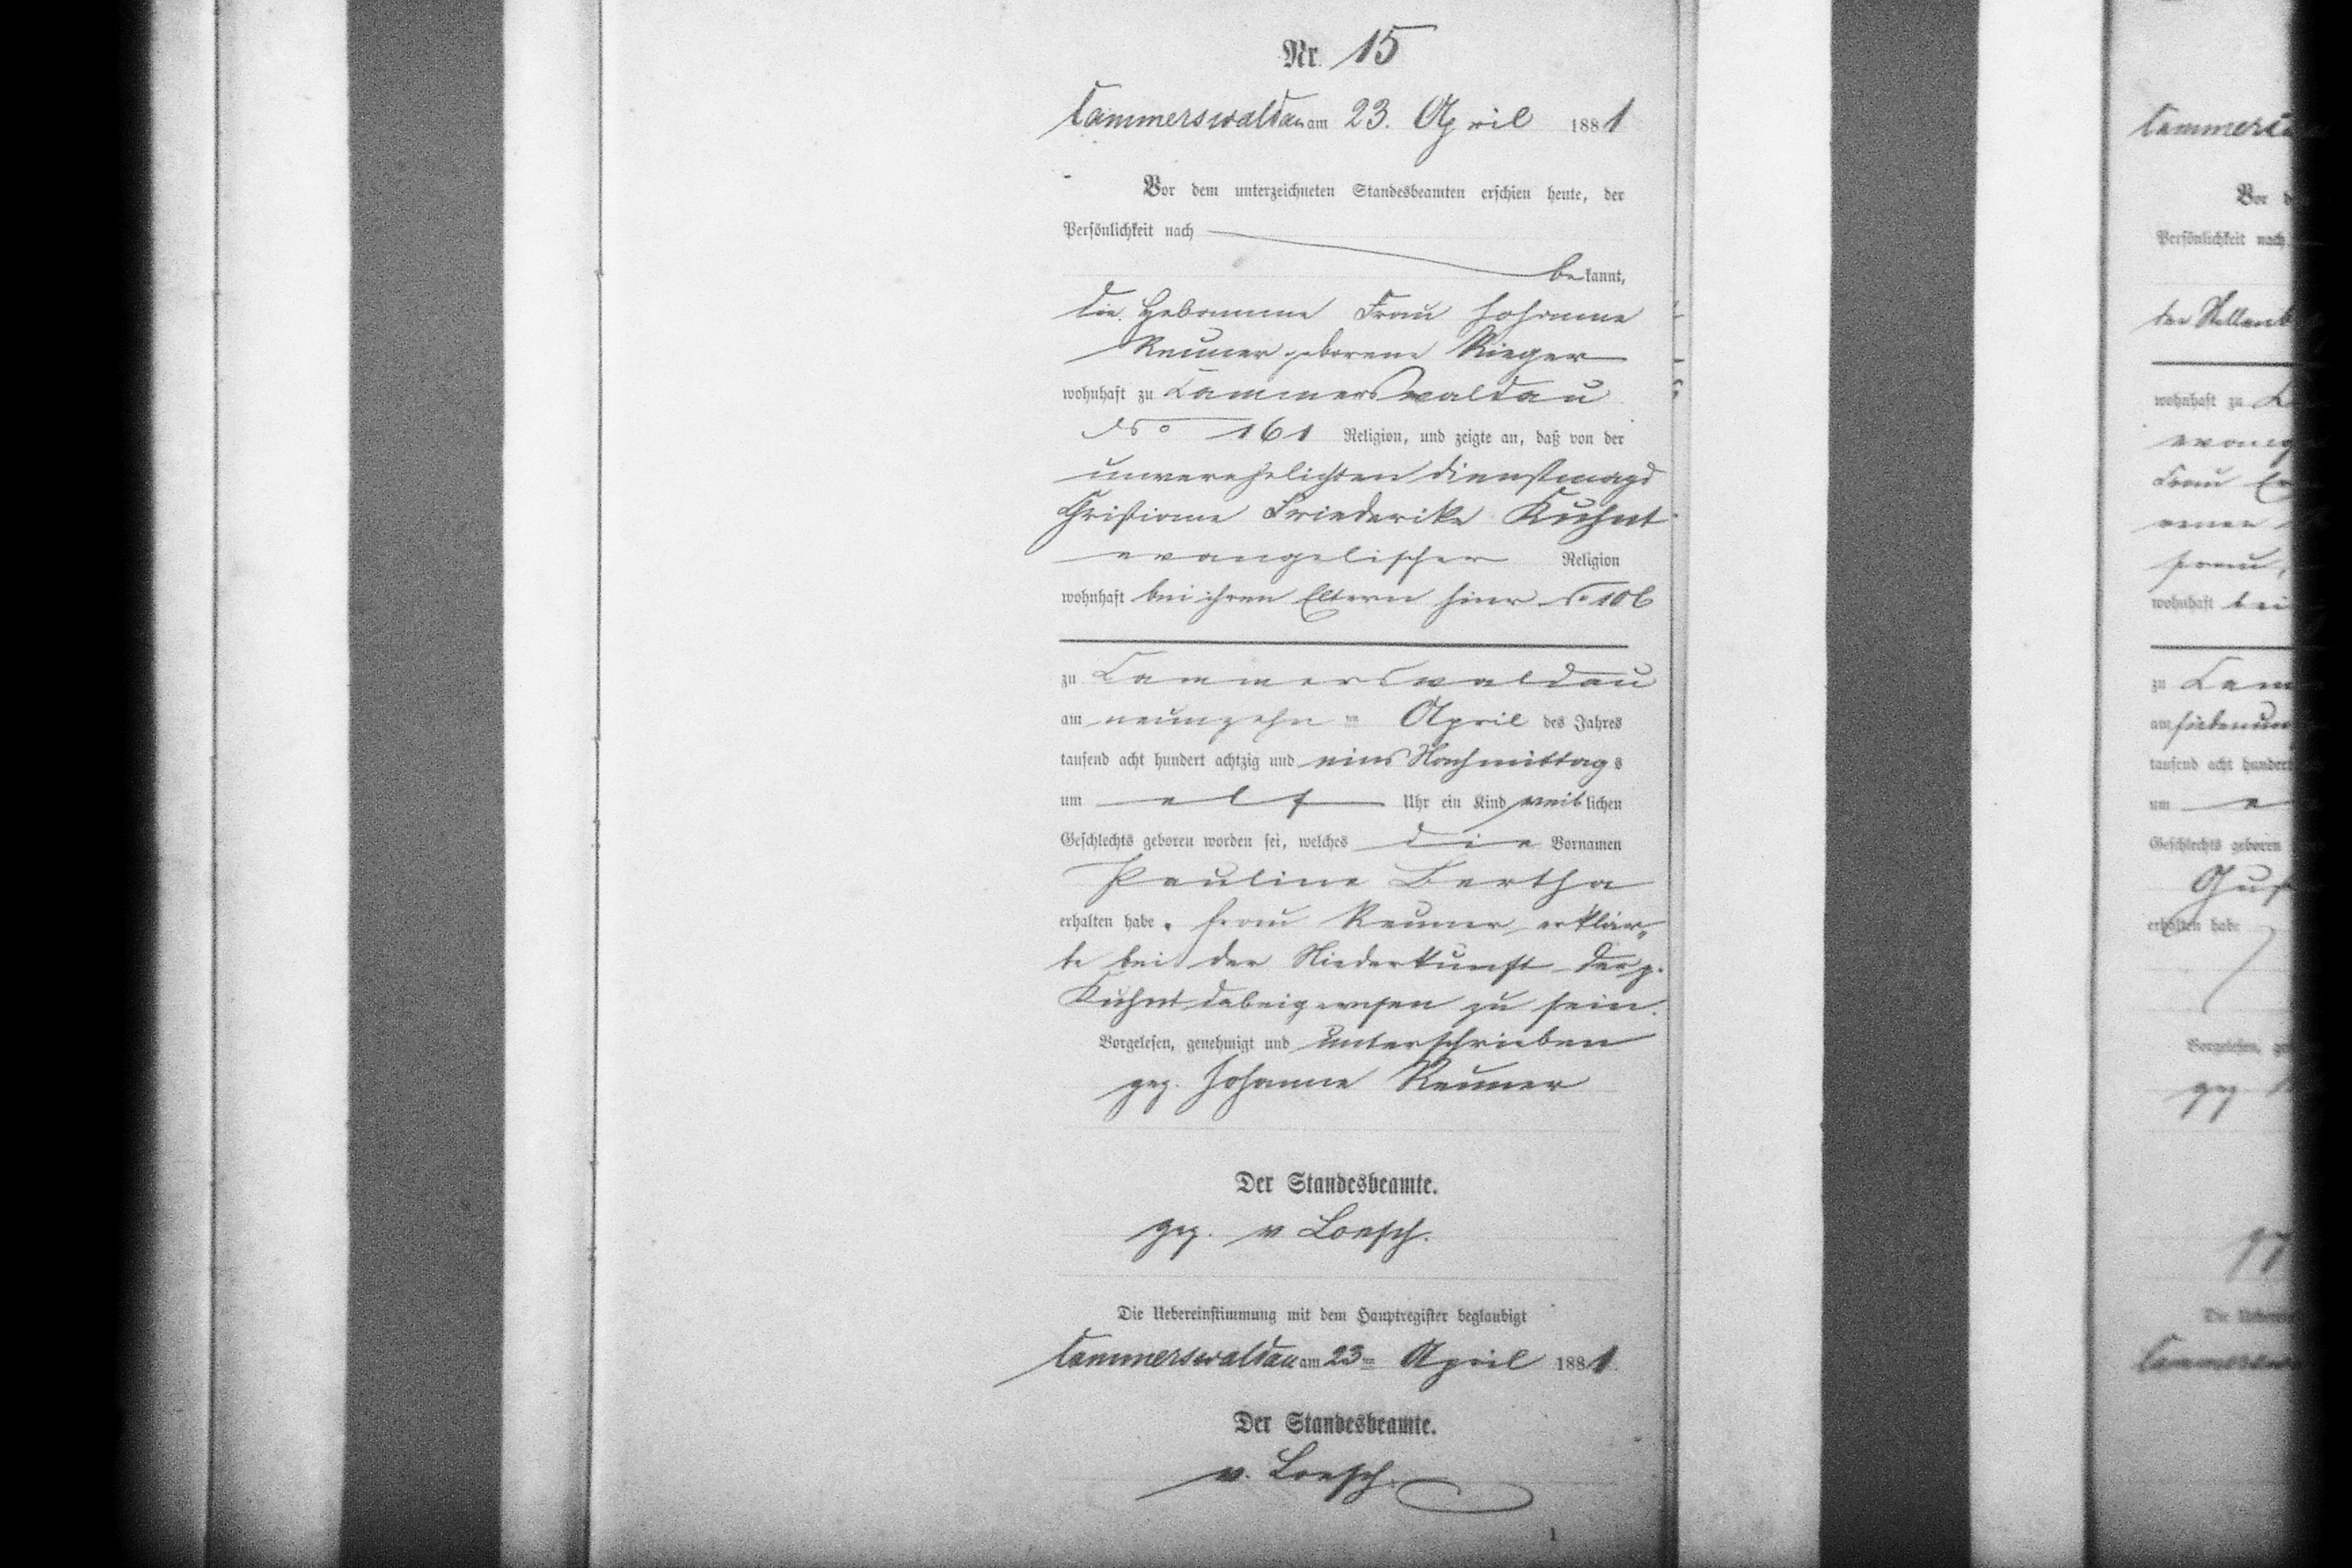 Nr. 15
Cammerswaldau am 23. April 1881
Vor dem unterzeichneten Standesbeamten erschien heute, der
Persönlichkeit nach
bekannt,
die Hebamme Frau Johanne
Reuner geborene Rieger
wohnhaft zu Cammerswaldau
No 161 Religion, und zeigte an, daß von der
unverehelichten Dienstmagd
Christiane Friederike Kuhnt
evangelischer Religion
wohnhaft bei ihren Eltern hier No 106
zu Cammerswaldau
am neunzehn ten April des Jahres
tausend acht hundert achtzig und eins Nachmittags
um elf Uhr ein Kind weiblichen
Geschlechts geboren worden sei, welches die Vornamen
Pauline Bertha
erhalten habe. Frau Reuner erklär„
te bei der Niederkunft der p.
Kuhnt dabeigewesen zu sein.
Vorgelesen, genehmigt und unterschrieben
gez. Johanne Reuner
Der Standesbeamte.
gez. v Loesch.
Die Uebereinstimmung mit dem Hauptregister beglaubigt
Cammerswaldau am 23ten April 1881.
Der Standesbeamte.
v. Loesch.
1
Vor d
Persönlichkeit nach
wohnhaft zu
Frau
wohnhaft bei
zu Cam
am siebenun
tausend acht hundert
um e
Geschlechts geboren
Gus
erhalten habe
gez